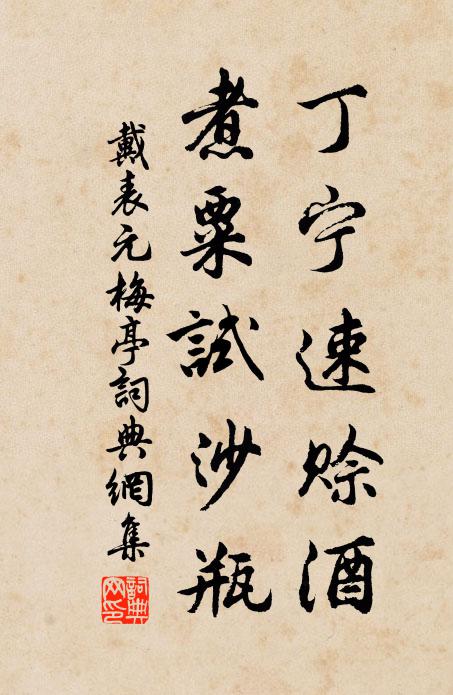 丁宁速赊酒
煮粟試沙瓶
戴表元梅亭詞典網集
詞典网印